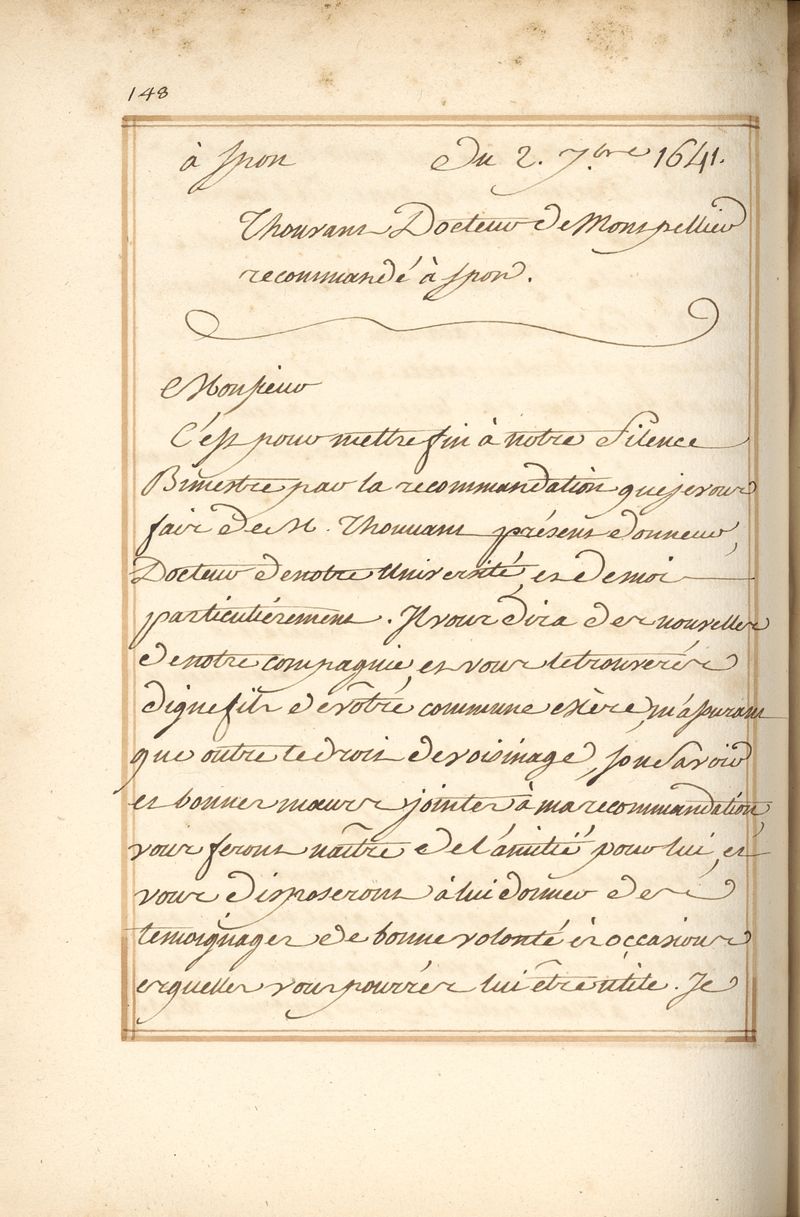 148
à Spon Du 2. 7.bre 1641.
Thouvant Docteur de Montpellier
recommandé à Spon.
Monsieur
C'est pour mettre fin à notre Silence
Bimestre par la recommandation que je vous
fais de M. Thouvant présent donneur,
Docteur de notre Université, et de moi
particuliérement. Il vous dira des nouvelles
de notre compagnie, et vous le trouverés
digne fils de vôtre commune Mère, m'assurant
que outre le droit de voisinage, son Savoir
et bonnes mœurs jointes à ma recommandation,
vous feront naître de l'amitié pour lui, et
vous disposeront à lui donner des
temoignages de bonne volonté ès occasions
esquelles vous pourrés lui être utile. Je